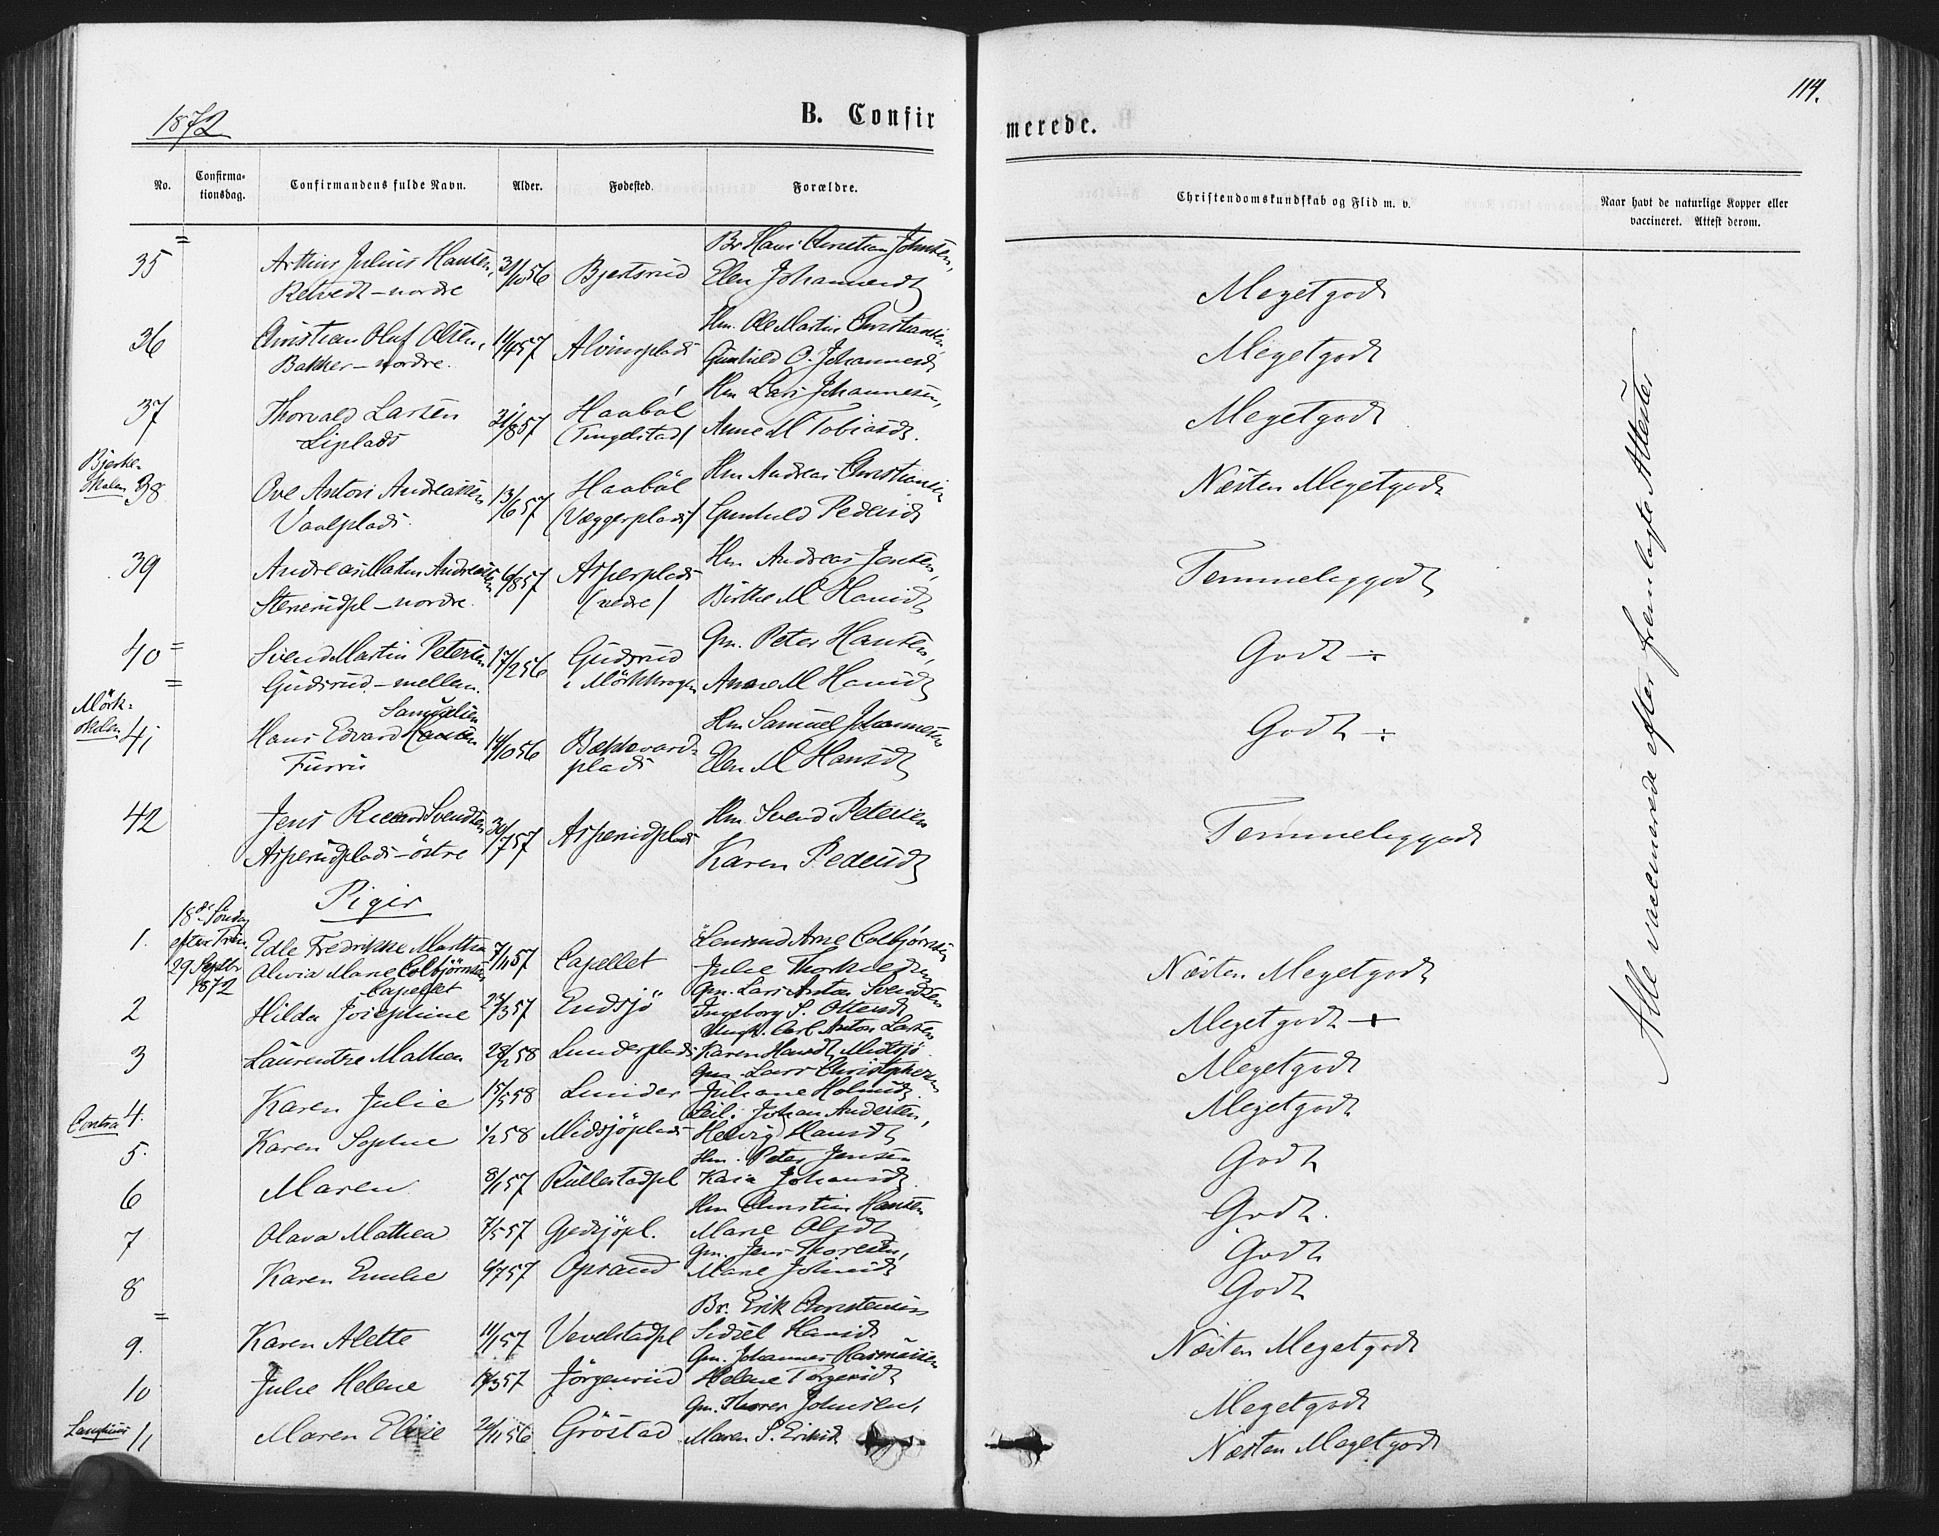 1872
B. Confirmerede.
114.
No.
Confirma-
tionsdag.
Confirmandens fulde Navn.
Alder.
Fødested.
Forældre.
Christendomskundskab og Flid m. v.
Naar havt de naturlige Kopper eller
vaccineret. Attest derom.
35
Arthur Julius Hansen,
Retvedt-nordre
31/10 56
Bjertsrud
Br Hans Christian Johnsen,
Elen Johannesdt
Megetgodt
36
Christian Oluf Olsen,
Bakker-nordre.
11/4 57
Alvimsplads
Hm. Ole Martin Christiansen,
Gunhild O. Johannesdt
Megetgodt
37
Thorvald Larsen
Liplads
21/8 57
Haabøl
(Tingelstad)
Hm Lars Johannesen,
Anne M Tobiasdt.
Megetgodt
38
Ove Anton Andreassen
Vaalplads.
13/6 57
Haabøl
(Væggerplads)
Hm Andreas Christiansen
Gunhild Pedersdt
Næsten Megetgodt
39
Andreas Martin Andreassen
Stenerudpl-nordre.
6/8 57
Asperplads
(nedre)
Hm. Andreas Jensen,
Birthe M Hansdt
Temmeliggodt
40
Svend Martin Petersen
Gudsrud-mellem.
17/2 56
Gudsrud
i Mörkkrogen
Gm. Peter Hansen,
Anne M Hansdt
Godt ÷
Mörk-
skolen
41
Samuelsen
Hans Edvard
Furru
14/10 56
Bækkevard-
plads
Hm Samuel Johannesen
Elen M Hansdt
Godt ÷
42
Jens Rikard Svendsen
Asperudplads-östre
30/7 57
Asperudplads
Hm. Svend Petersen
Karen Pedersdt
Temmeliggodt
Piger
1.
18de Söndag
efter Trin.
29 Septbr
1872
Edle Fredrikke Martha
Alvia Marie Colbjörnsen
Capellet
7/11 57
Capellet
Lensmd Arne Colbjørnsen
Julie Thorkildsen
Næsten Megetgodt
2
Hilda Josephine
23/3 57
Endsjö
Gm. Lars Anton Svendsen
Ingeborg S. Ottersdt
Megetgodt +
3
Laurentze Mathea
28/2 58
Lunderplads
Ungk. Carl Anton Larsen
Karen Hansdt Midsjö
Megetgodt
4.
Karen Julie
15/5 58
Lunder
Gm Lars Christophersen
Juliane Holmsdt.
Megetgodt
5.
Karen Sophie
1/2 58
Midsjöplads
Johan Andersen,
Helvig Hansdt
Godt
6
Maren
8/1 57
Rullestadpl
Hm. Peter Jensen
Kaia Johansdt.
Godt.
7
Olava Mathea
7/5 57
Gjedsjöpl.
Hm Christian Hansen
Marie Olsdt
Godt
8
Karen Emilie
6/7 57
Opsand
Gm. Jens Thoresen,
Marie Johnsdt
Godt
9.
Karen Alette
11/1 57
Vevelstadpl
Br. Erik Christensen
Sidsel Hansdt
Næsten Megetgodt
10
Julie Helene
18/3 57
Jörgenrud
Gm. Johannes Rasmussen
Helene Torgersdt
Megetgodt
11
Maren Elise
24/11 56
Gröstad
Gm. Thorer Johnsen,
Maren S. Eriksdt
Næsten Megetgodt
Alle vaccinerede efter fremlagte Attester